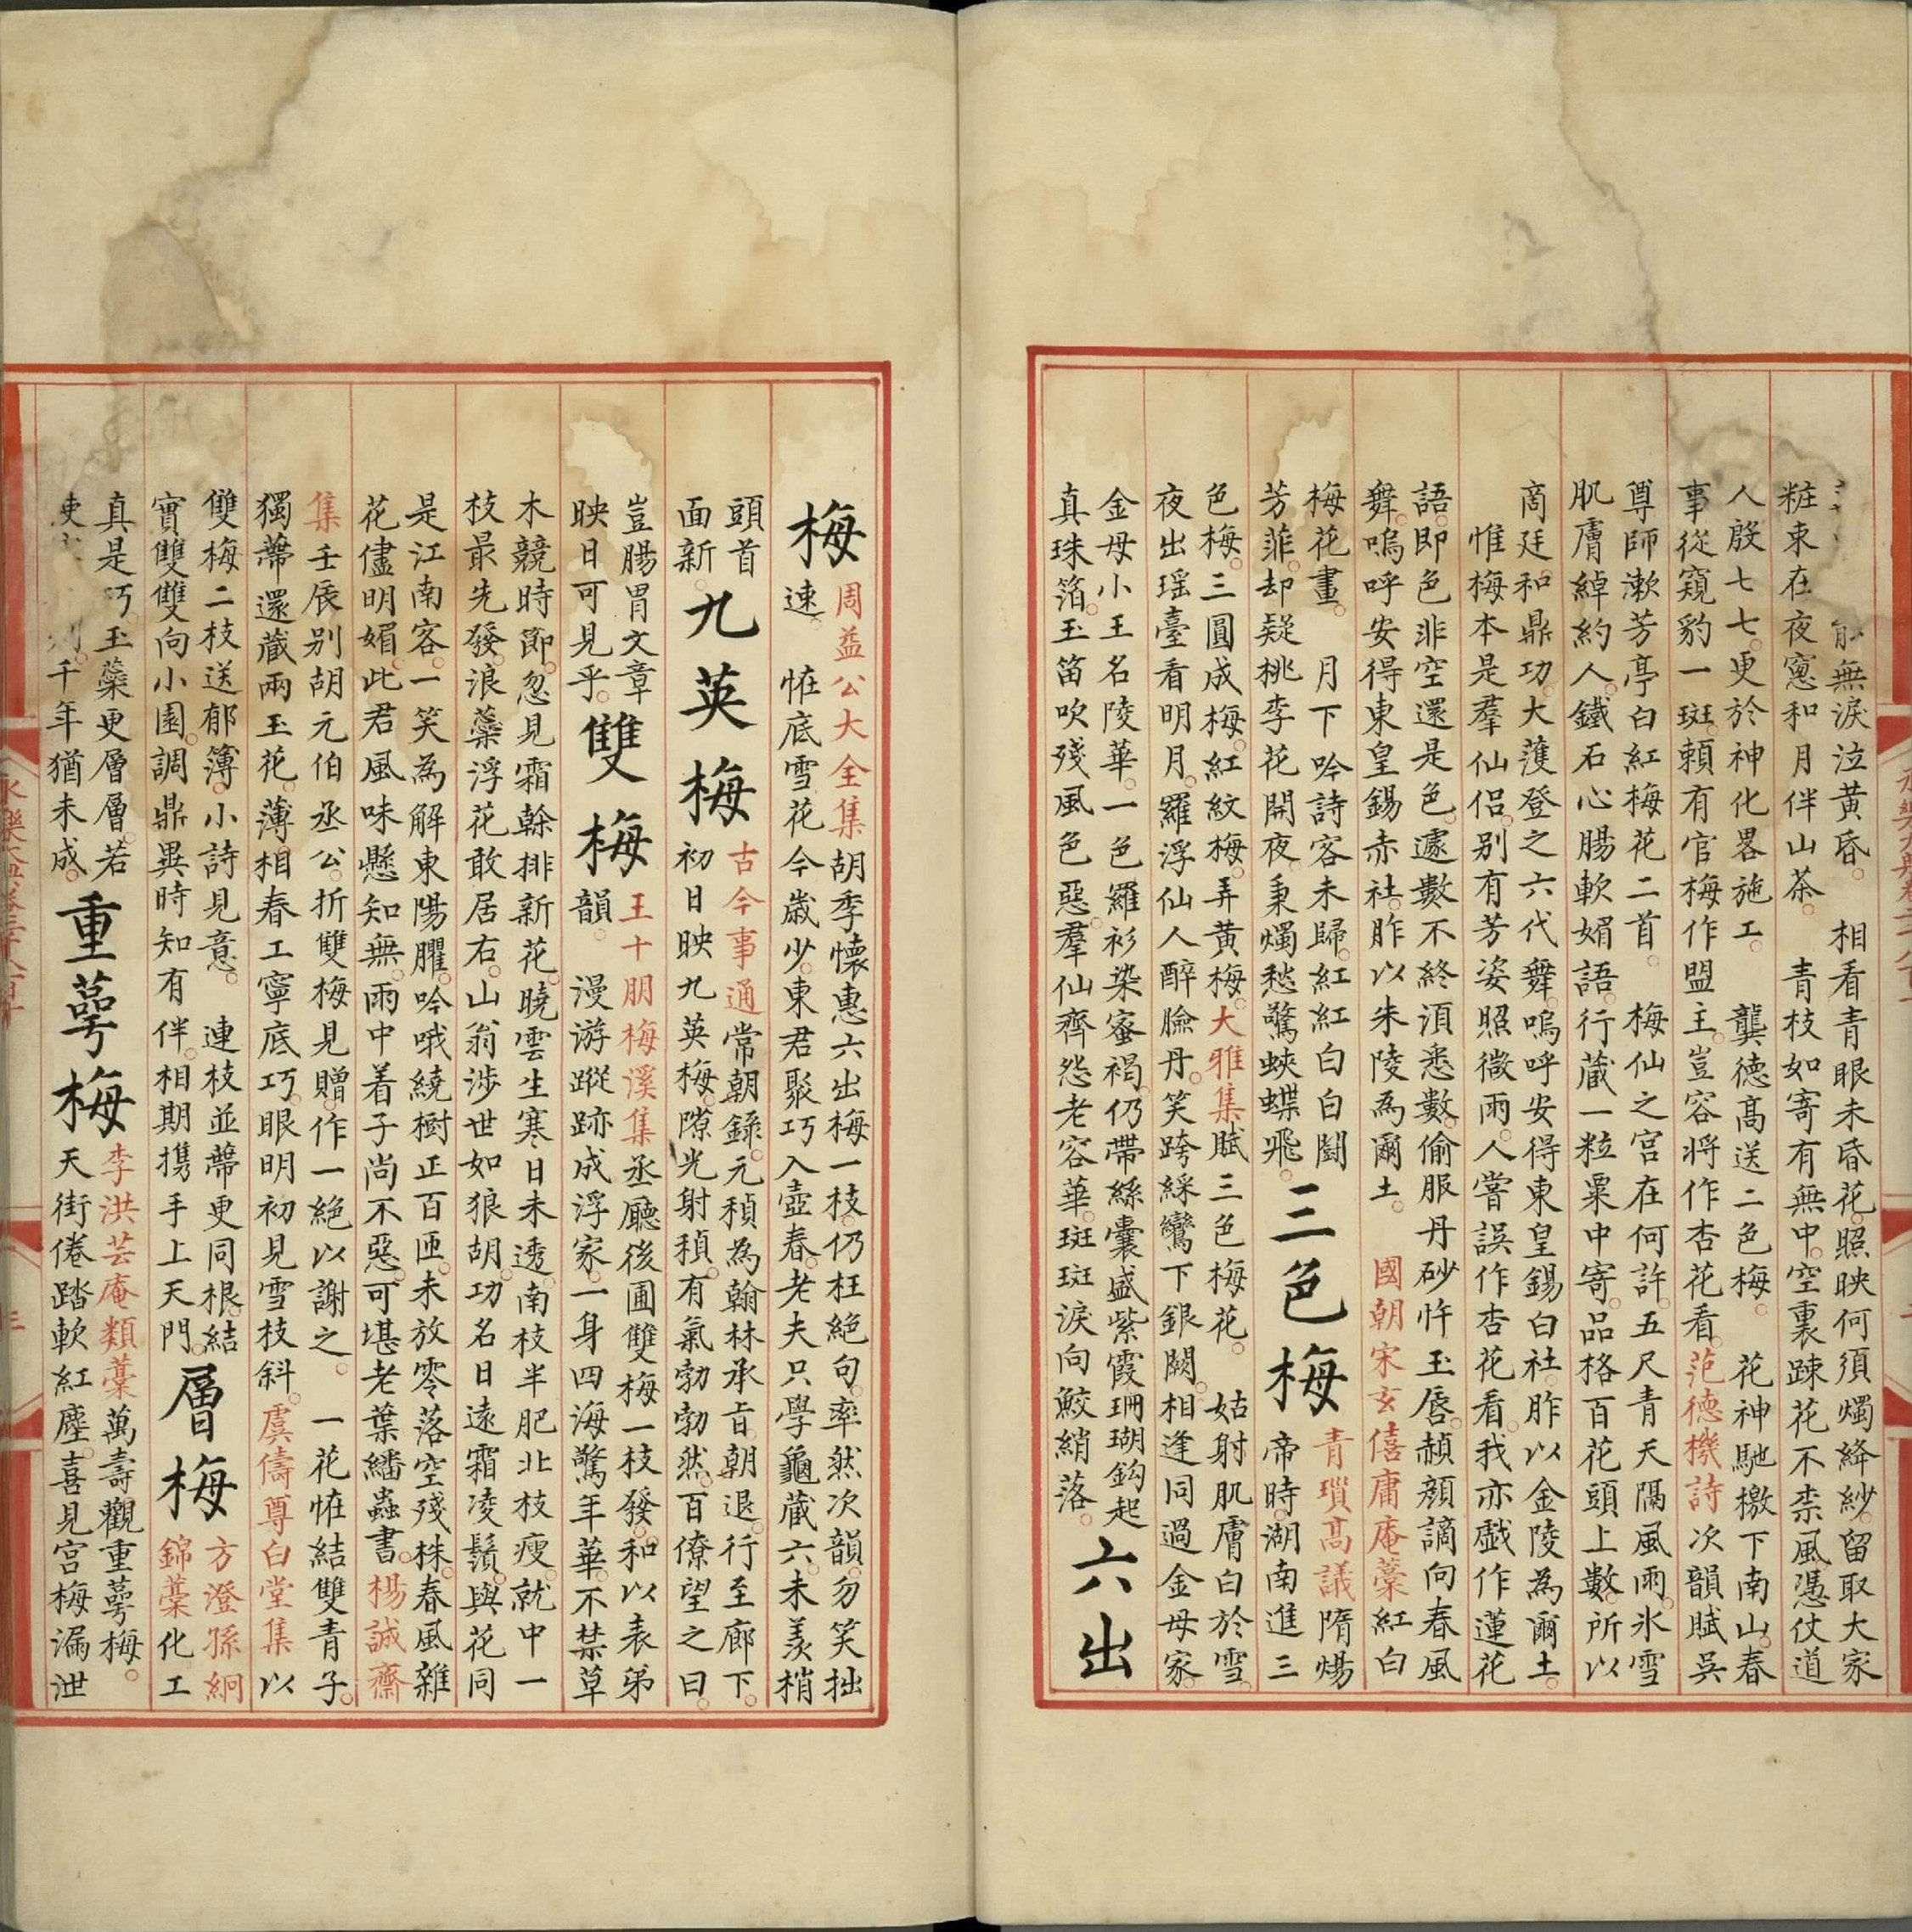 無淚泣黃昏。 相看青眼未昏花。照映何須燭絳紗。留取大家
粧束在夜窻和月伴山茶。 青枝如寄有無中。空裏踈花不柰風。憑仗道
人殷七七。更於神化畧施工。 龔德高送二色梅。 花神馳檄下南山。春
事從窺豹一斑。頼有官梅作盟主。豈容將作杏花看。范德機詩次韻賦吳
尊師漱芳亭白紅梅花二首。 梅仙之宮在何許。五尺青天隔風雨。氷雪
肌膚綽約人。鐵石心腸軟媚語。行蔵一粒粟中寄。品格百花頭上數。所以
商廷和鼎功。大護登之六代舞。嗚呼安得東皇錫白社。胙以金陵為爾土。
惟梅本是羣仙侣。别有芳姿照微雨。人嘗誤作杏花看。我亦戲作蓮花
語。即色非空還是色。遽數不終湏悉數。偷服丹砂忤玉唇。赬顏謫向春風
舞。嗚呼安得東皇錫赤社。胙以朱陵為爾土。 國朝宋玄僖庸庵藁紅白
梅花畫。 月下吟詩客未歸。紅紅白白鬪
芳菲。却疑桃李花開夜。秉燭愁驚蛺蝶飛。
三色梅
青瑣高議隋煬
帝時。湖南進三
色梅。三圓成梅。紅紋梅。弄黃梅。大雅集賦三色梅花。 姑射肌膚白於雪。
夜出瑶臺看明月。羅浮仙人醉臉丹。笑跨綵鸞下銀闕。相逢同過金母家。
金母小玉名陵華。一色羅衫染蜜褐。仍帶絲囊盛紫霞。珊瑚鈎起
真珠箔。玉笛吹殘風色惡。羣仙齊怨老容華。斑斑淚向鮫綃落。
六出
梅
周益公大全集胡季懷惠六出梅一枝。仍枉絕句。率然次韻。勿笑拙
速。 恠底雪花今歲少。東君聚巧入壺春。老夫只學龜蔵六。未羨梢
頭首
面新。
九英梅
古今事通常朝錄。元稹為翰林承旨。朝退。行至廊下。
初日映九英梅。隙光射稹。有氣勃勃然。百僚望之曰。
豈腸胃文章
映日可見乎。
雙梅
王十朋梅溪集丞廳後圃雙梅一枝發。和以表弟
韻。 漫游蹤跡成浮家。一身四海驚年華。不禁草
木競時節。忽見霜榦排新花。曉雲生寒日未透。南枝半肥北枝瘦。就中一
枝最先發。浪蘂浮花敢居右。山翁涉世如狼胡。功名日遠霜凌鬚。與花同
是江南客。一笑為解東陽臞。吟哦繞樹正百匝。未放零落空殘株。春風雜
花儘明媚。此君風味懸知無。雨中着子尚不惡。可堪老葉蟠蟲書。楊誠齋
集壬辰别胡元伯丞公。折雙梅見贈。作一絕以謝之。 一花恠結雙青子。
獨蔕還蔵兩玉花。薄相春工寧底巧。眼明初見雪枝斜。虞儔尊白堂集以
雙梅二枝送郁簿。小詩見意。 連枝並蔕更同根。結
實雙雙向小園。調鼎異時知有伴。相期攜手上天門。
層梅
方澄孫絅
錦藁化工
真是巧。玉蘂更層層。若
千年猶未成。
重萼梅
李洪芸庵類藁萬壽觀重萼梅。
天街倦踏軟紅塵。喜見宮梅漏泄